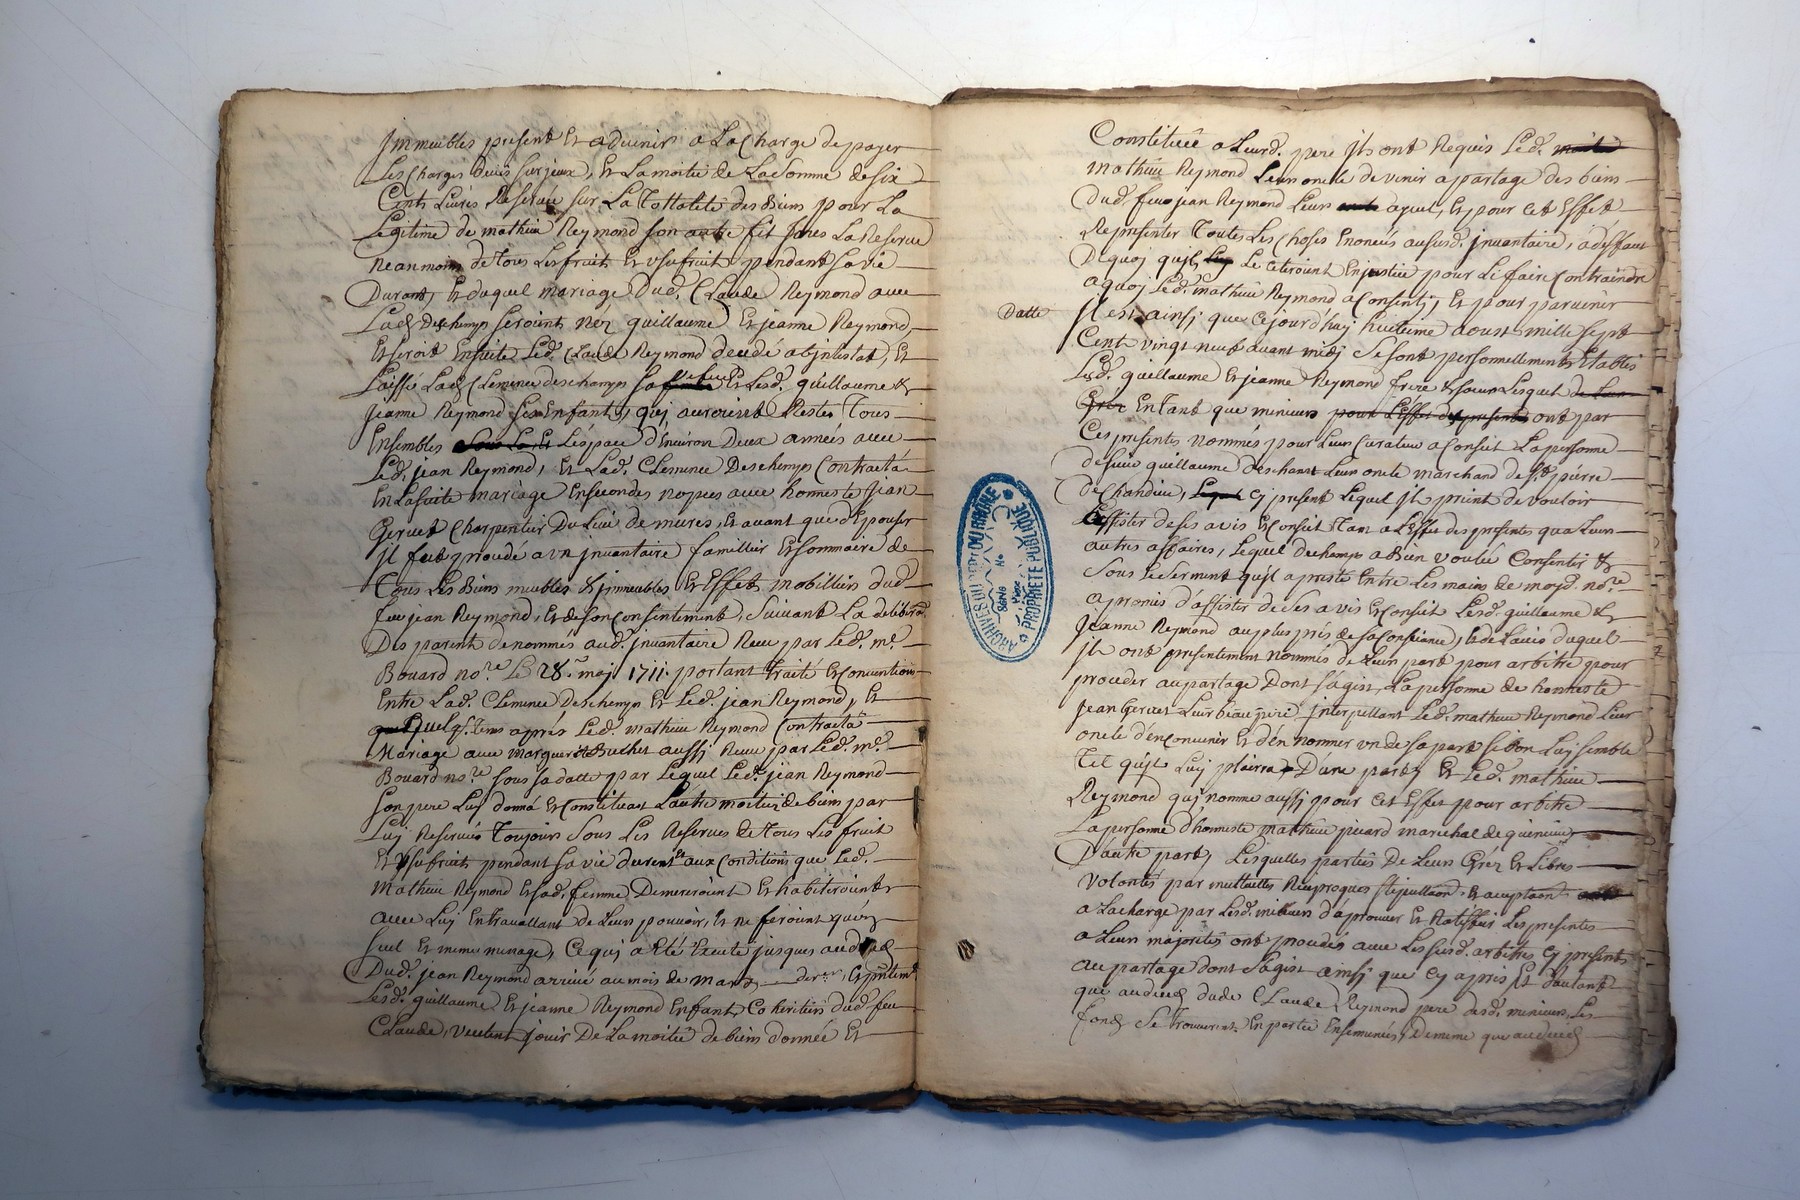 Immeubles present Et advenir a La Charge de payer
Les charges deües sur jceux, Et La moitié de La Somme de six
Cents Livres Reservée sur La Tottalité des Biens pour La
Legitime de mathieu Reymond son autre fils sous La Reserve
neanmoins de tous Les fruits Et Usufruits pendant sa vie
Durant, Et duquel mariage Dud. Claude Reymond avec
Lad. Deschamps seroient néz guillaume Et jeanne Reymond,
Et seroit Ensuite Led. Claude Reymond decedé abjntestat, Et
Laissé Lad. Clemence deschamps sa veuve Et Lesd. guillaume &
jeanne Reymond ses Enfants, quj auroient Restés Tous
Ensembles L'éspace d'Environ Deux années avec
Led. jean Reymond, Et Lad. Clemence Deschamps Contracta
En La suitte mariage En secondes nopces avec honneste Jean
Gervet Charpentier Du Lieu de mures, Et avant que d'Epouser
jl fut procedé a un jnvantaire famillier Et sommaire de
Tous Les Biens meubles & jmmeubles Et Effets mobilliers dud.
feu jean Reymond, Et de son Consentement, Suivant La deliberaõn
Des parents denommés aud. jnvantaire Receu par Led. me.
Bouard nore. Le 28e. maj 1711. portant traité Et Conventions
Entre Lad. Clemence Deschamps Et Led. jean Reymond, Et
Quelq. tems aprés Led. mathieu Reymond Contracta
Mariage avec marguerite Buchet aussj Receu par Led. me.
Bouard nore. sous sa datte par Lequel Led. jean Reymond
son pere Luj donna Et Constituat L'autre moitié de biens par
Luj Reservés Toujours Sous Les Reserves de tous Les fruits
Et Usufruits pendant sa vie durent Et aux Conditions que Led.
Mathieu Reymond Et sad. femme Demereroient Et habiteroient
avec Luj En travaillant de Leur pouvoir, Et ne feroient qu'un
seul Et même menage, Ce quj a Eté Exécuté jusques au decéd
Dud. jean Reymond arrivé au mois de mars der.er, Et presentemt.
Lesd. guillaume Et jeanne Reymond Enfants Coheritiers dud. feu
Claude, veulent jouir De La moitié de biens donnée Et
Constituée a Leurd. pere jls ont Requis Led.
mathieu Reymond Leur oncle de venir a partage des biens
Dud. feu jean Reymond Leur ayeul, Et pour cet Effet
Representer Toutes Les Choses Enoncées au susd. jnvantaire, a deffaut
De quoj qu'jls Le citeroient En justice pour Le faire Contraindre
a quoj Led. mathieu Reymond a Consentj, Et pour parvenir
Datte
jl est ainsj que Cejourd'huj huitieme aoust mille sept
Cent vingt neuf avant midj Se sont personnellement Etablis
Lesd. guillaume Et jeanne Reymond frere & sœur Lesquels de Leur
Gréz En Tant que mineurs pour L'Effet des presentes ont par
Ces presentes nommés pour Leur Curateur a Conseil La personne
de sieur guillaume deschamps Leur oncle marchand de St. pierre
de Chandieu, Cj present Lequel jls prient de vouloir
L'assister de ses avis Et Conseil Tant a L'Effet des presentes qu'a Leurs
autres affaires, Lequel deschamps a Bien voulu Consentir &
Sous Le Serment qu'jl a presté Entre Les mains de moyd. nore.
a promis d'assister de Ses avis Et Conseil Lesd. guillaume &
Jeanne Reymond au plus prés de sa Consciance, Et de L'avis duquel
jls ont presentement nommés de Leur part pour arbitre pour
proceder au partage Dont S'agist, La personne de honneste
jean Gervet Leur beau pere jnterpellant Led. mathieu Reymond Leur
oncle d'en Convenir Et d'en nommer un de sa part Si bon Luj Semble
Tel qu'jl Luj plairra D'une part, Et Led. mathieu
Reymond quj nomme aussj pour Cet Effet pour arbitre
La personne d'honneste mathieu picard marechal de quincieu
D'autre part, Lesquelles parties De Leurs Gréz Et Libres
Volontés par mutuelles Reciproques stipullaõn Et acceptaõn
a La charge par Lesd. mineurs d'aprouver Et Ratiffier Les presentes
a Leur majorités ont procedés avec Les susd. arbitres Cj presents
au partage dont S'agist ainsj que Cj aprés Et d'autant
que au decéd dud. Claude Reymond pere desd. mineurs Les
fonds Se Trouverent En partie Ensemencés, De meme que au decéd
ARCHIVES DU DEPT DU RHONE
PROPRIETE PUBLIQUE